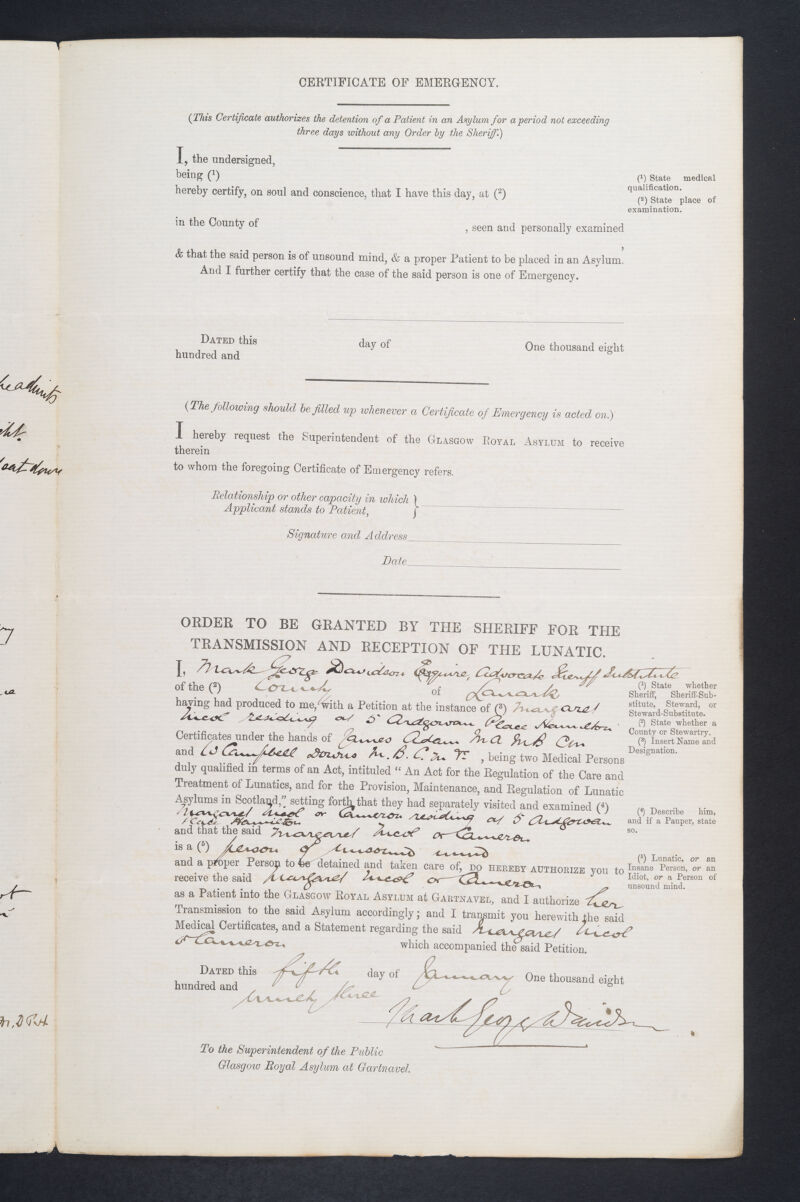 CERTIFICATE OF EMERGENCY.
(This Certificate authorizes the detention of a Patient in an Asylum for a period not exceeding
three days without any Order by the Sheriff.)
I, the undersigned,
being (¹)
hereby certify, on soul and conscience, that I have this day, at (²)
(¹) State medical
qualification.
(²) State place of
examination.
in the County of , seen and personally examined
,
& that the said person is of unsound mind, & a proper Patient to be placed in an Asylum.
And I further certify that the case of the said person is one of Emergency.
DATED this day of One thousand eight
hundred and
(The following should be filled up whenever a Certificate of Emergency is acted on.)
I hereby request the Superintendent of the GLASGOW ROYAL ASYLUM to receive
therein
to whom the foregoing Certificate of Emergency refers.
Relationship or other capacity in which }
Applicant stands to Patient,
Signature and Address
Date
ORDER TO BE GRANTED BY THE SHERIFF FOR THE
TRANSMISSION AND RECEPTION OF THE LUNATIC.
I, Mark George Davidson Esquire, Advocate Sheriff Substitute
of the (²) County of Lanark
having had produced to me, with a Petition at the instance of (³) Margaret
Nicol residing at 5 Ardgowan Place Hamilton
Certificates under the hands of James Adam MA MB Cm
and W Campbell Downs M.B.C.M , being two Medical Persons
duly qualified in terms of an Act, intituled “ An Act for the Regulation of the Care and
Treatment of Lunatics, and for the Provision, Maintenance, and Regulation of Lunatic
Asylums in Scotland,” setting forth that they had separately visited and examined (⁴)
Margaret Nicol or Cameron residing at 5 Ardgowan
Place Hamilton
and that the said Margaret Nicol or Cameron
is a (⁵) person of unsound mind
and a proper Person to be detained and taken care of, DO HEREBY AUTHORIZE you to
receive the said Margaret Nicol or Cameron
as a Patient into the GLASGOW ROYAL ASYLUM at GARTNAVEL, and I authorize her
Transmission to the said Asylum accordingly; and I transmit you herewith the said
Medical Certificates, and a Statement regarding the said Margaret Nicol
or Cameron which accompanied the said Petition.
(¹) State whether
Sheriff, Sheriff-Sub-
stitute, Steward, or
Steward-Substitute.
(²) State whether a
County or Stewartry.
(³) Insert Name and
Designation.
(⁴) Describe him,
and if a Pauper, state
so.
(⁵) Lunatic, or an
Insane Person, or an
Idiot, or a Person of
unsound mind.
DATED this fifth day of January One thousand eight
hundred and ninety three
Mark George Davidson
To the Superintendent of the Public
Glasgow Royal Asylum at Gartnavel.
he admits